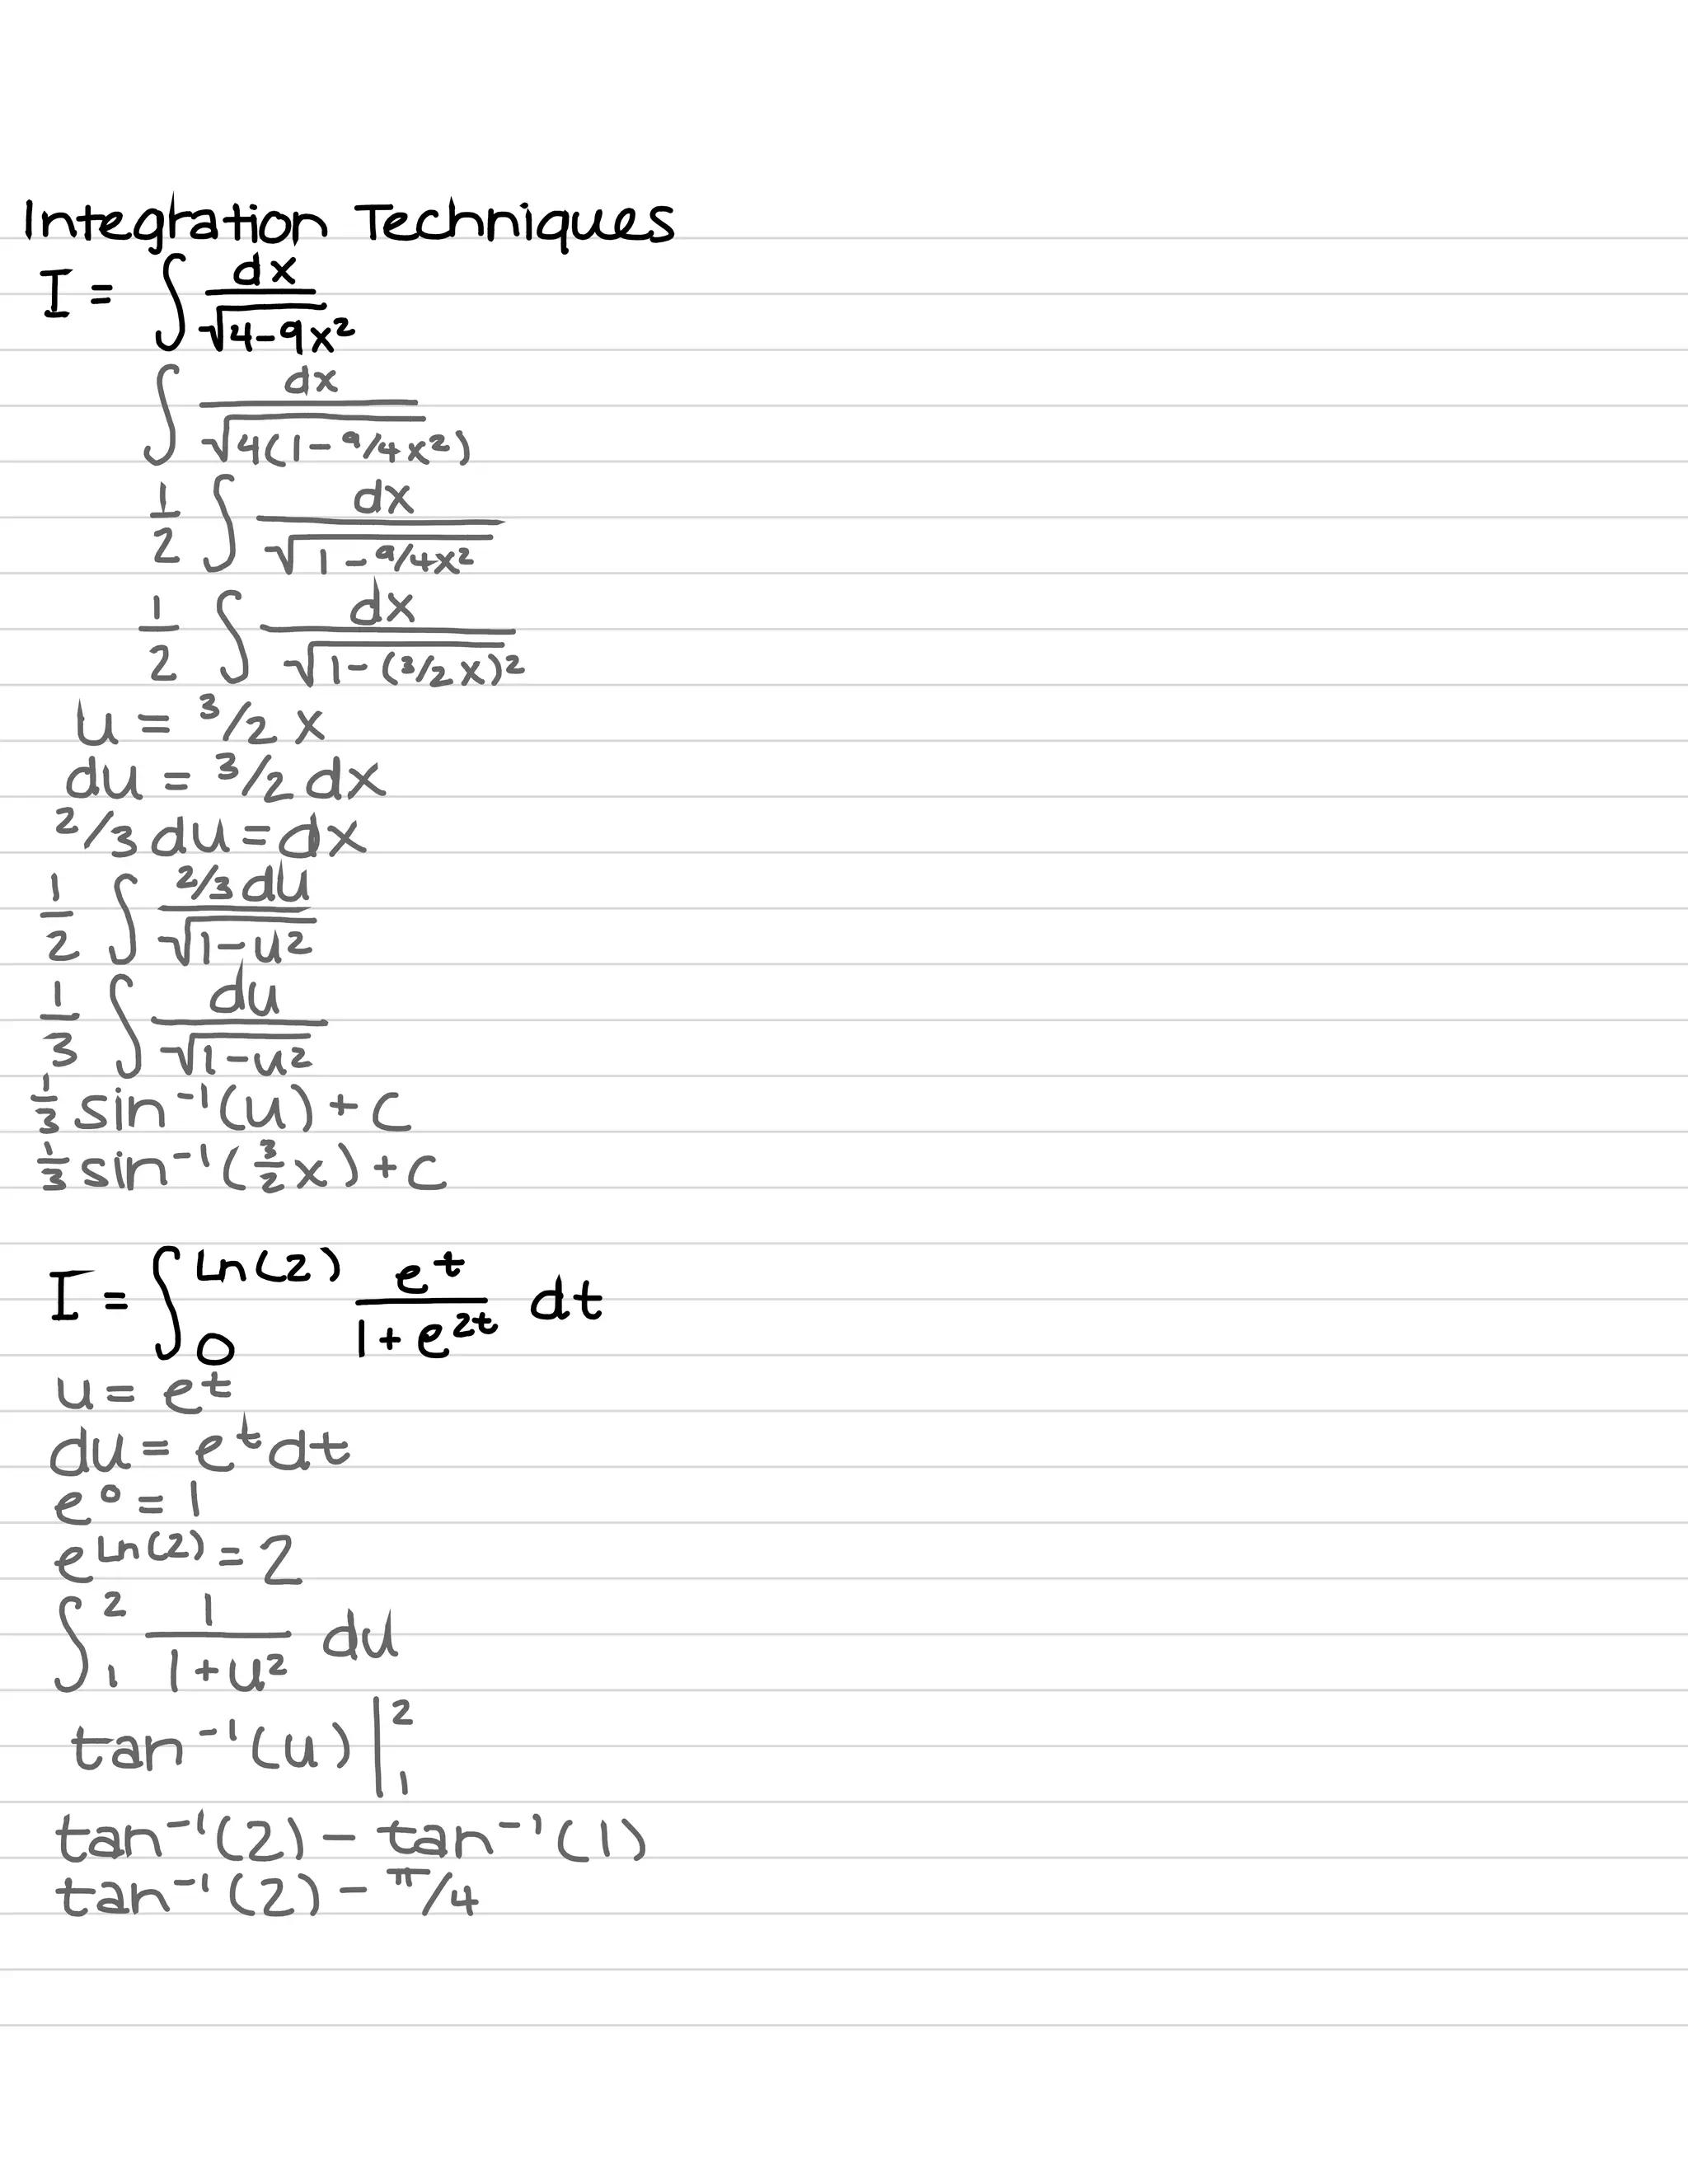 Integration Techniques
I = ∫ dx / √(4-9x²)
∫ dx / √(4(1-9/4x²))
1/2 ∫ dx / √(1-9/4x²)
1/2 ∫ dx / √(1-(3/2x)²)
u = 3/2 x
du = 3/2 dx
2/3 du = dx
1/2 ∫ 2/3 du / √(1-u²)
1/3 ∫ du / √(1-u²)
1/3 sin⁻¹(u) + C
1/3 sin⁻¹(3/2 x) + C
I = ∫₀^Ln(2) e^t / (1+e^2t) dt
u = e^t
du = e^t dt
e⁰ = 1
e^Ln(2) = 2
∫₁² 1 / (1+u²) du
tan⁻¹(u) |₁²
tan⁻¹(2) - tan⁻¹(1)
tan⁻¹(2) - π/4